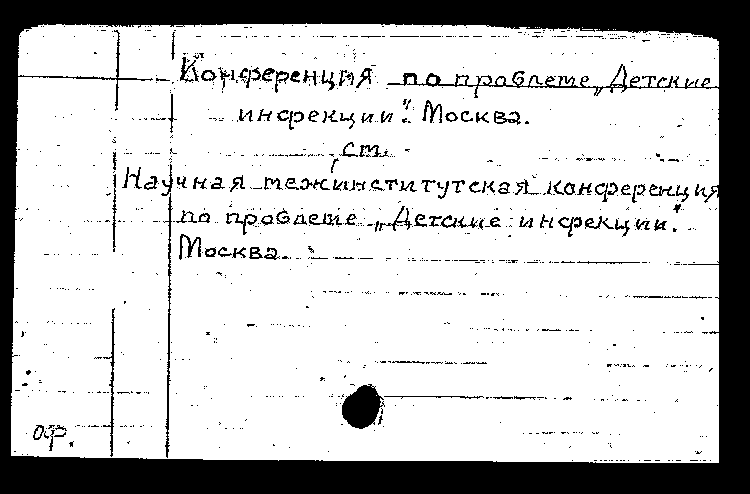 Конференция по проблеме „Детские
инфекции". Москва.
ст.
Научная межинститутская конференция
по проблеме „Детские инфекции".
Москва.
оф.